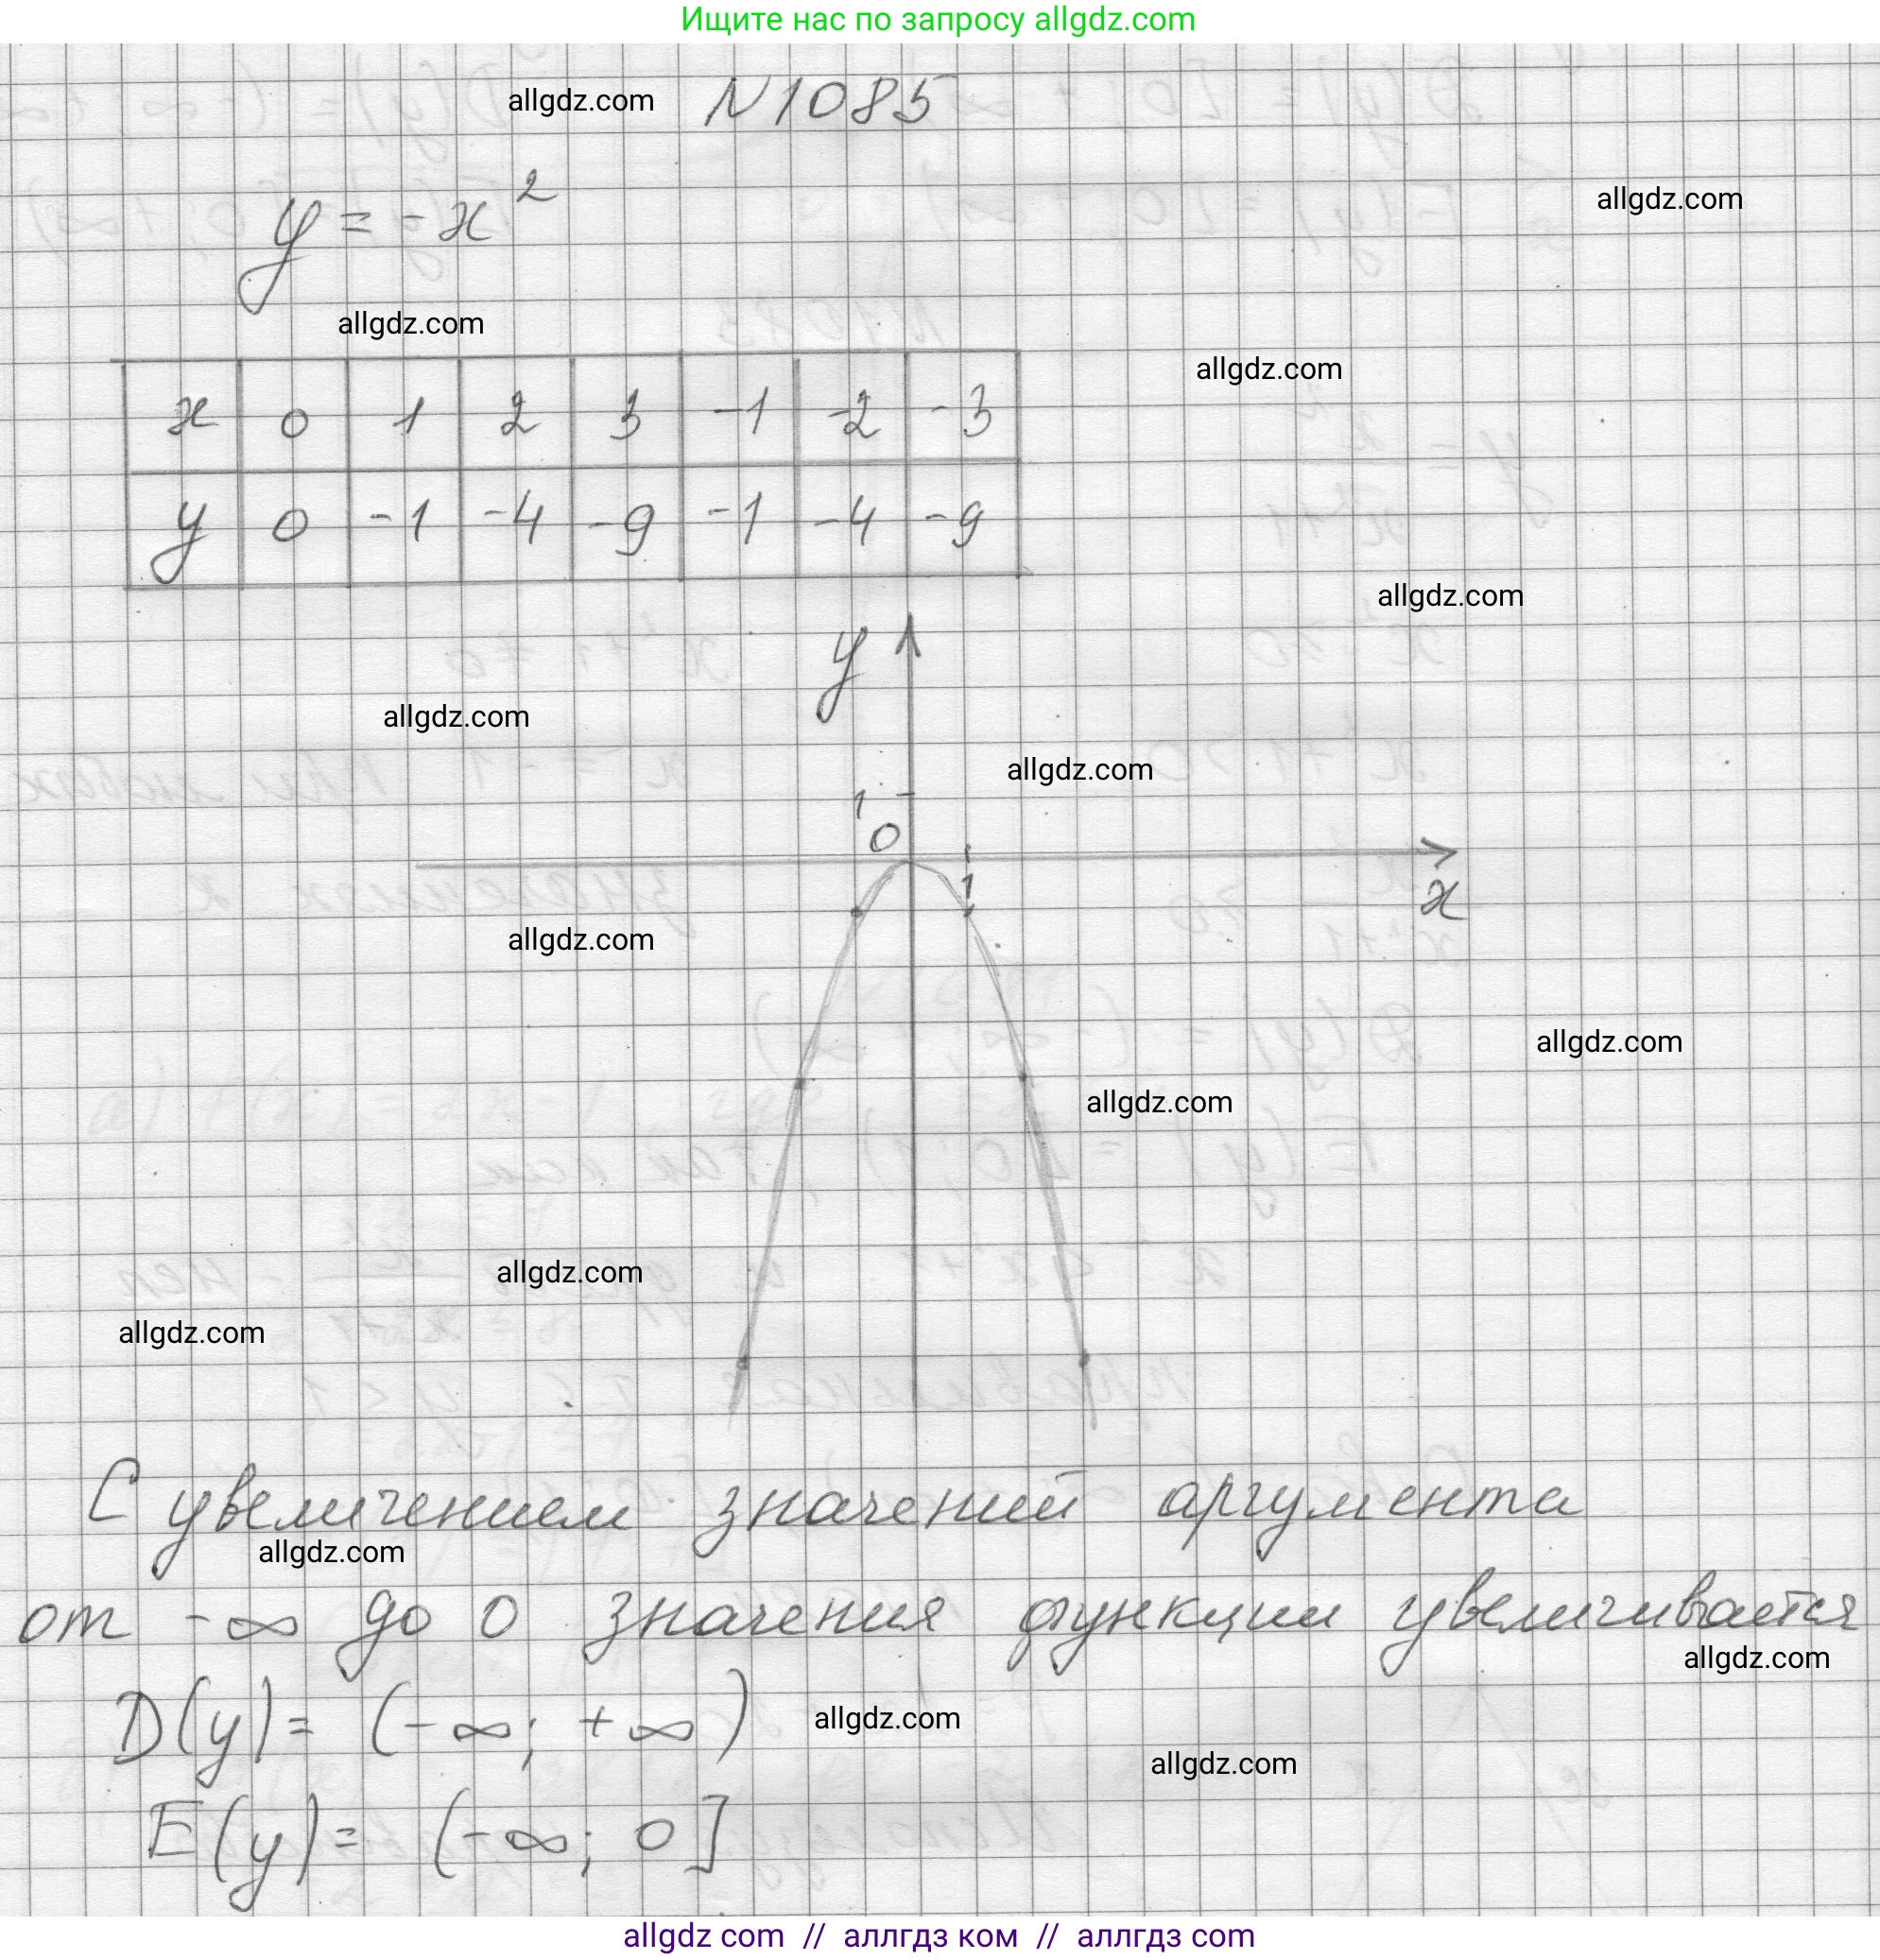 Ищите нас по запросу allgdz.com
allgdz.com
N1085
y = -x²
allgdz.com
allgdz.com
allgdz.com
x 0 1 2 3 -1 -2 -3
y 0 -1 -4 -9 -1 -4 -9
allgdz.com
y
allgdz.com
allgdz.com
1
0
1
x
allgdz.com
allgdz.com
allgdz.com
allgdz.com
allgdz.com
С увеличением значений аргумента
allgdz.com
от -∞ до 0 значения функции увеличивается
allgdz.com
D(y) = (-∞; +∞)
allgdz.com
allgdz.com
E(y) = (-∞; 0]
allgdz com // аллгдз ком // аллгдз com